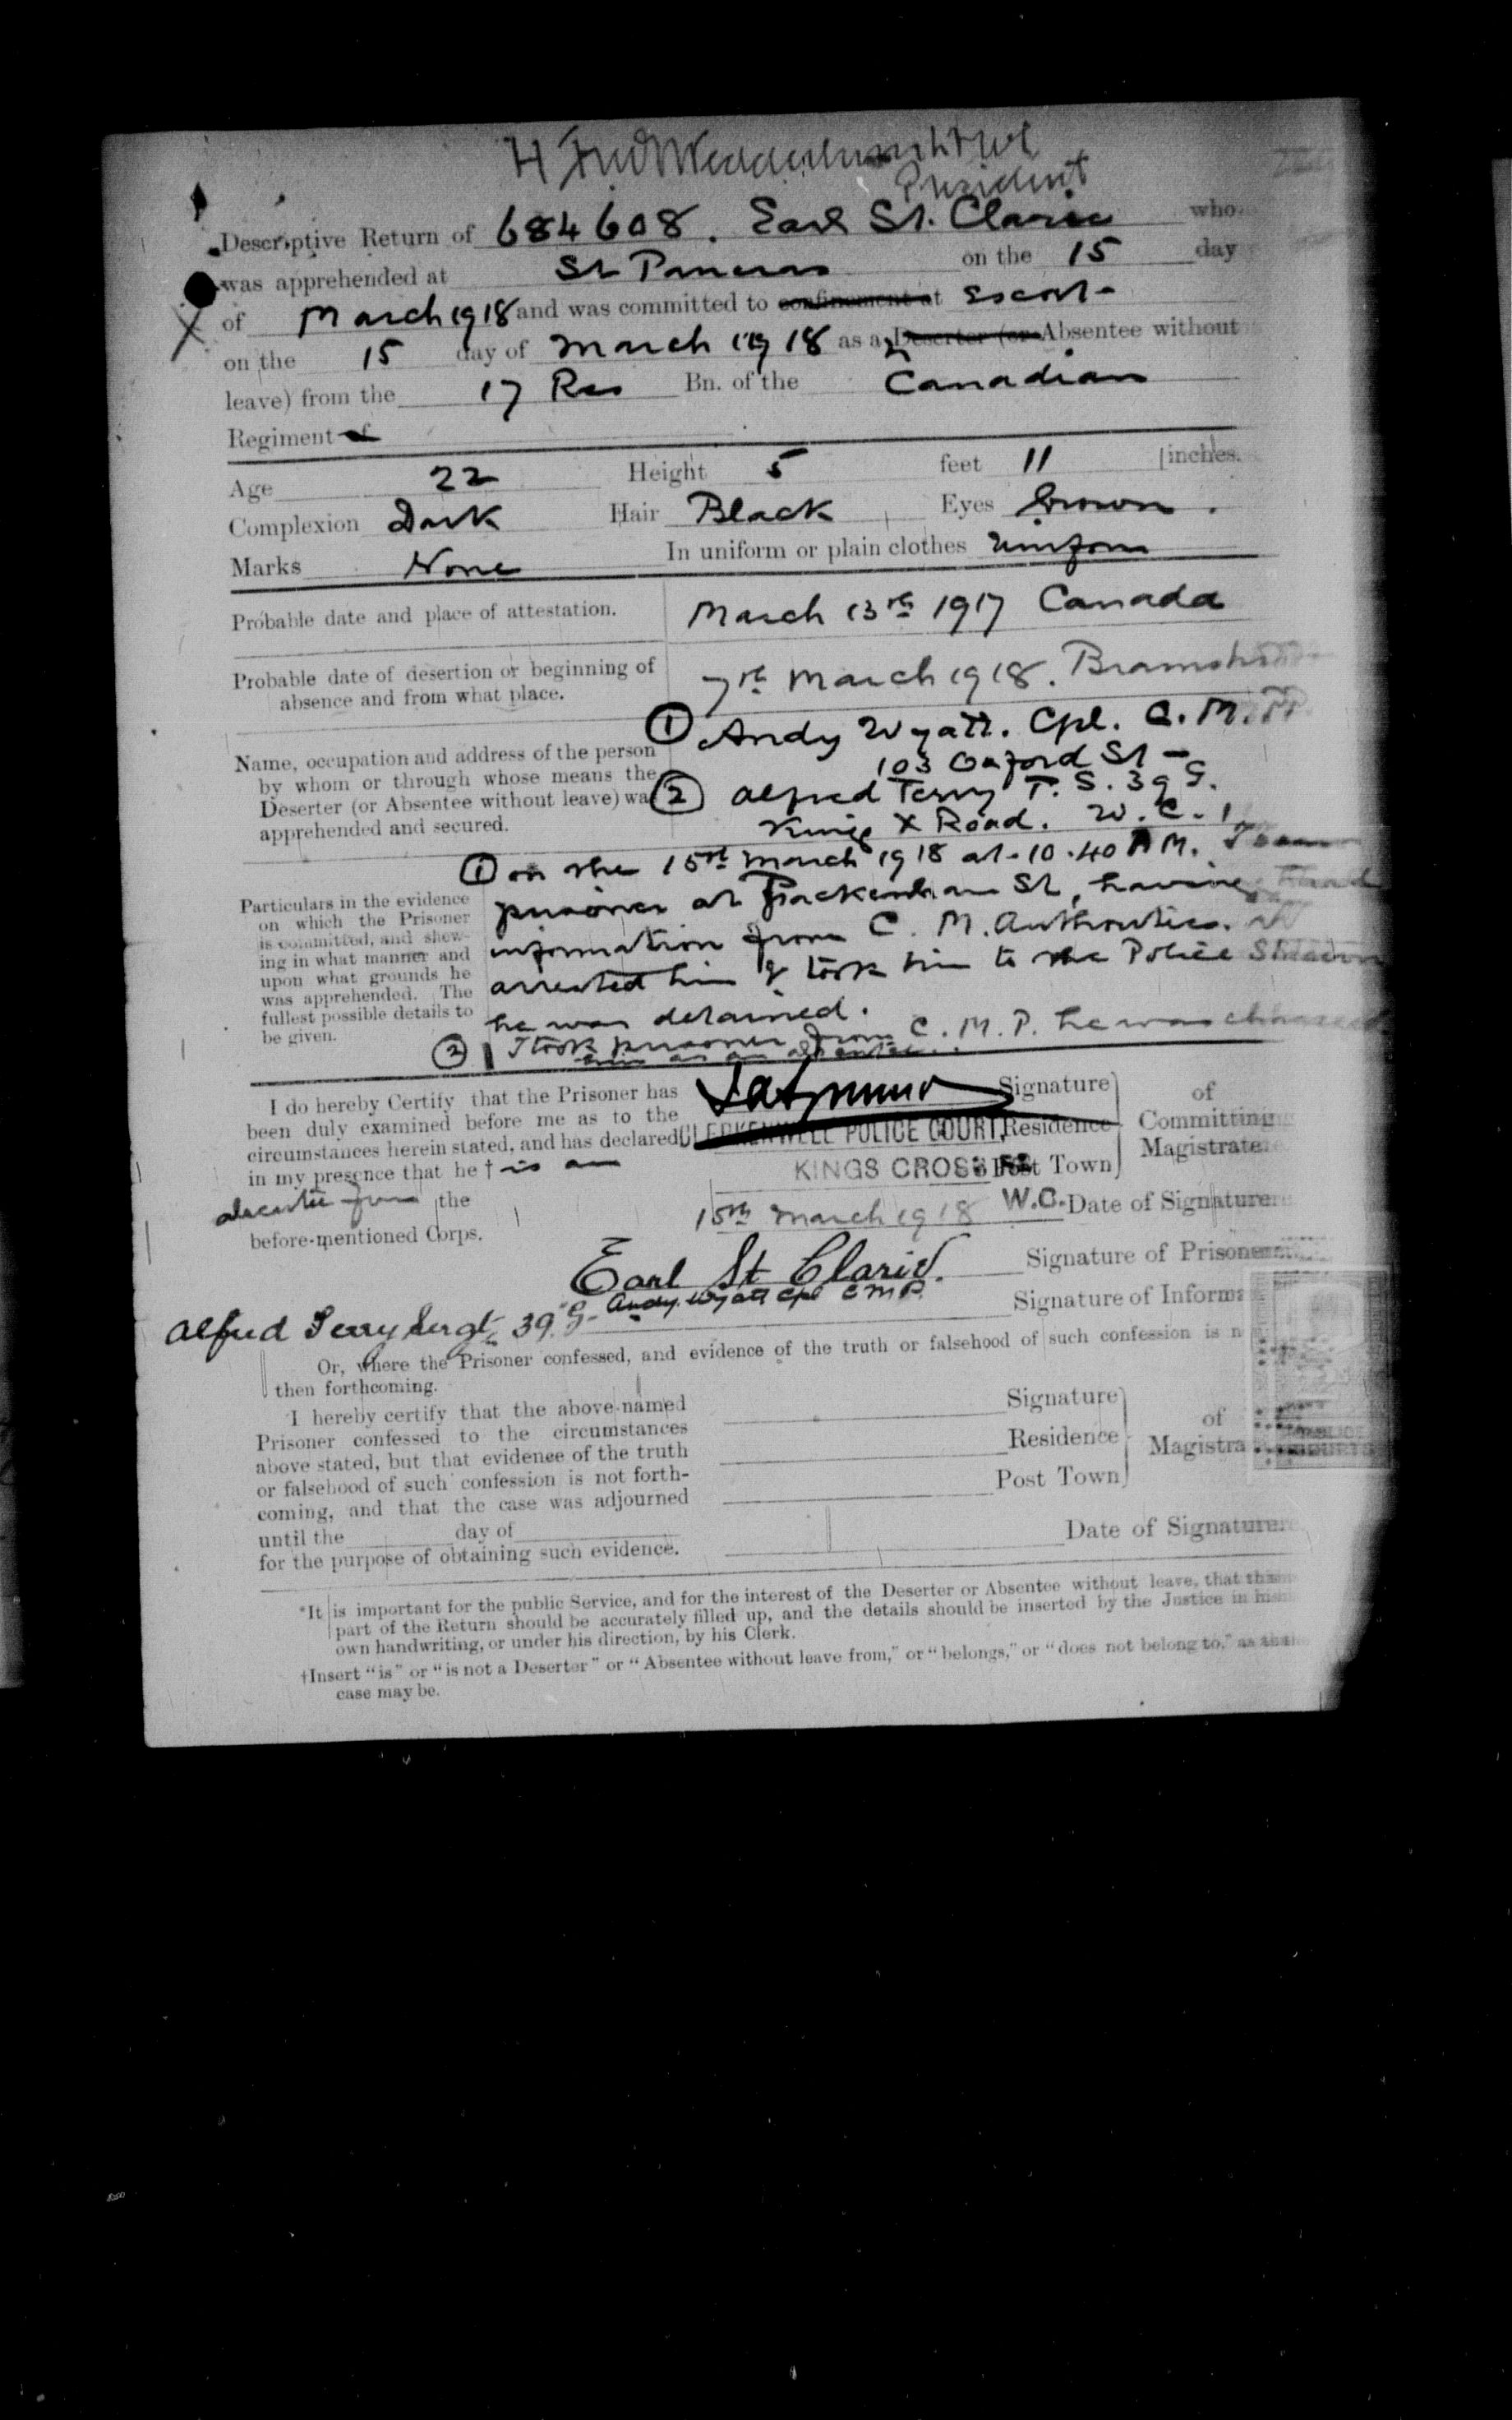 President
Descriptive Return of 684608. Earl St. Clarie who
was apprehended at St Pancras on the 15 day
of March 1918 and was committed to confinement at Escort-
on the 15 day of March 1918 as a Deserter (or Absentee without
leave) from the 17 Res Bn. of the Canadian
Regiment of
Age 22 Height 5 feet 11 inches.
Complexion Dark Hair Black Eyes brown.
Marks None In uniform or plain clothes Uniform
Probable date and place of attestation. March 13th 1917 Canada
Probable date of desertion or beginning of
absence and from what place. 7th March 1918.
Name, occupation and address of the person
by whom or through whose means the
Deserter (or Absentee without leave) was
apprehended and secured.
① Andy Wyatt. Cpl. C.M.P.
103 Oxford St -
② Alfred Terry P.S. 39 G.
Kings X Road. W.C.1
Particulars in the evidence
on which the Prisoner
is committed, and shew-
ing in what manner and
upon what grounds he
was apprehended. The
fullest possible details to
be given.
① on the 15th March 1918 at 10.40 AM. I saw
prisoner at Packenham St, having had
information from C. M. Authorities. I
arrested him & took him to the Police Station
he was detained.
② I took prisoner from C.M.P. he was charged
as an absentee.
I do hereby Certify that the Prisoner has
been duly examined before me as to the
circumstances herein stated, and has declared
in my presence that he † is an
absentee from the
before-mentioned Corps.
Signature
CLERKENWELL POLICE COURT, Residence
KINGS CROSS Rd Post Town
of
Committing
Magistrate.
15th March 1918 W.C. Date of Signature
Earl St Clarie. Signature of Prisoner
Andy Wyatt Cpl CMP. Signature of Informa
Alfred Terry Sergt 39 G
Or, where the Prisoner confessed, and evidence of the truth or falsehood of such confession is n
then forthcoming.
I hereby certify that the above-named
Prisoner confessed to the circumstances
above stated, but that evidence of the truth
or falsehood of such confession is not forth-
coming, and that the case was adjourned
until the day of
for the purpose of obtaining such evidence.
Signature
Residence
Post Town
of
Magistra
Date of Signature
*It is important for the public Service, and for the interest of the Deserter or Absentee without leave, that this
part of the Return should be accurately filled up, and the details should be inserted by the Justice in his
own handwriting, or under his direction, by his Clerk.
†Insert "is" or "is not a Deserter" or "Absentee without leave from," or "belongs," or "does not belong to," as the
case may be.